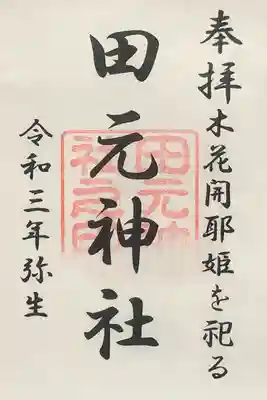 奉拝 木花開耶姫を祀る
田元神社
令和三年弥生
田元神社之印